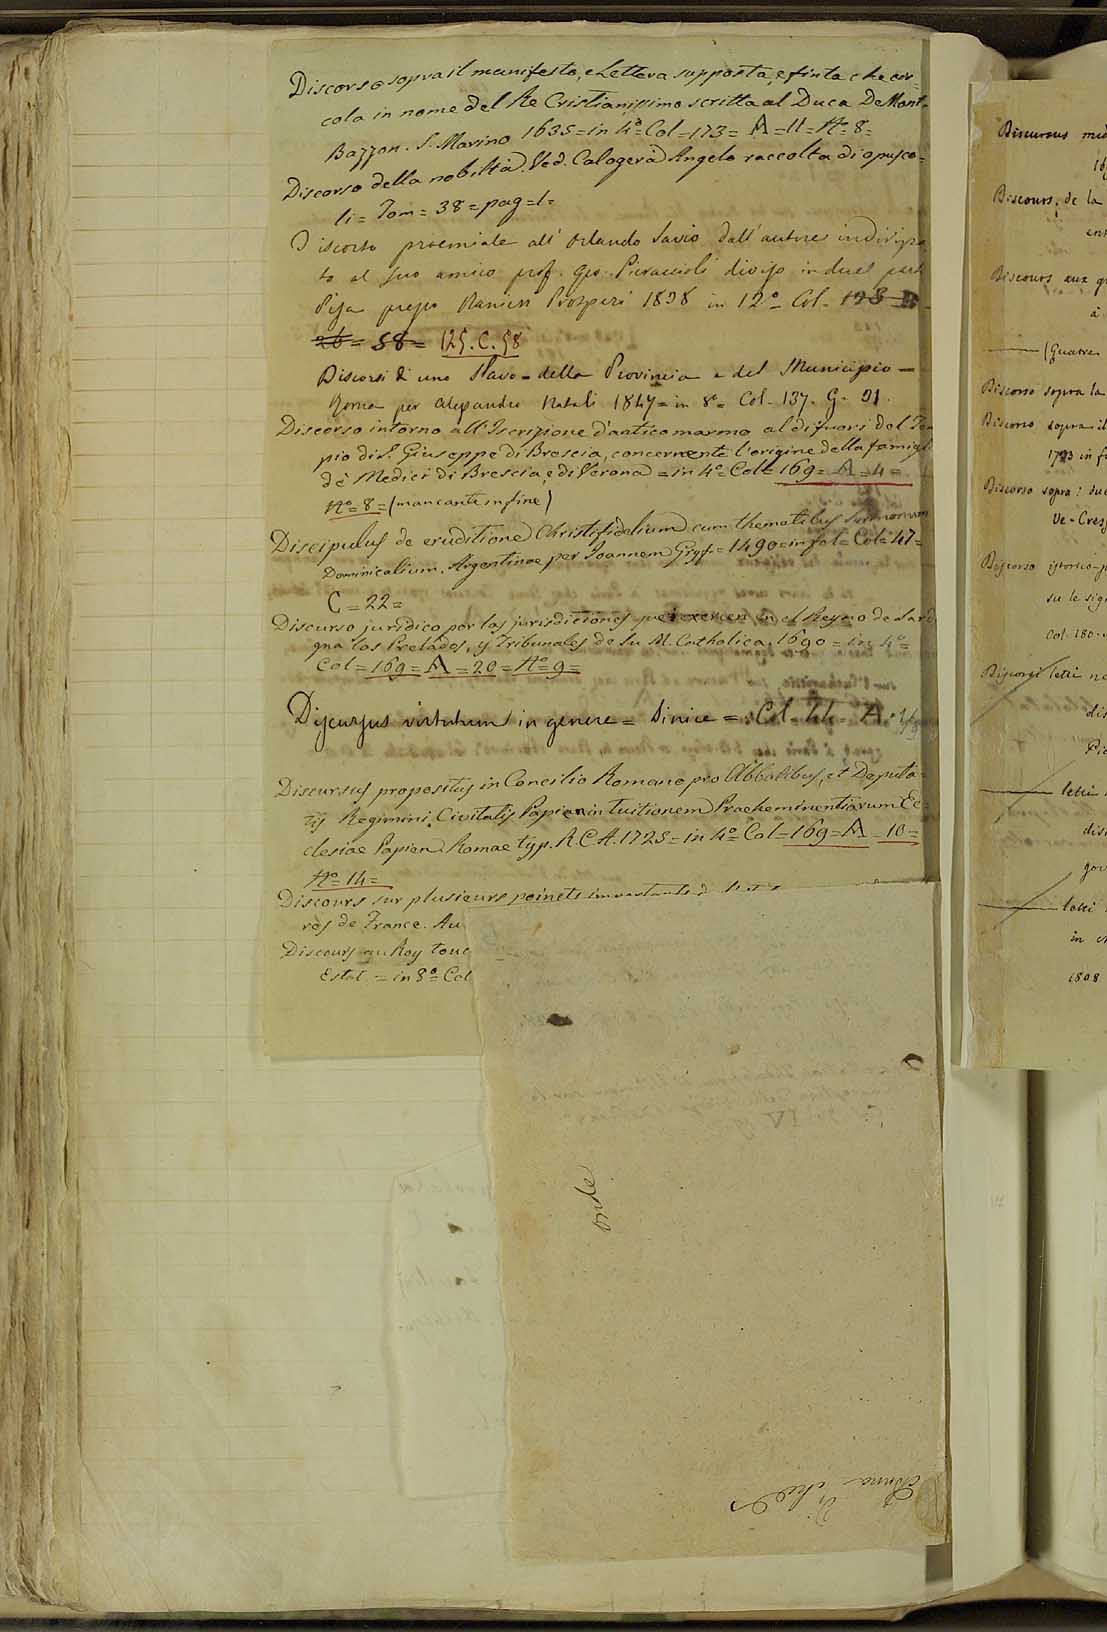 Discorso sopra il manifesto, e Lettera supposta, e finta che cir=
cola in nome del Re Cristianissimo scritta al Duca De Mont=
Bazzon. S. Marino 1635 = in 4º = Col = 173 = A = 11 = Nº = 8 =
Discorso della nobiltà. Ved. Calogerà Angelo raccolta di opusco=
li = Tom = 38 = pag = 1 =
Discorso proemiale all' Orlando Savio dall' autore indirizza
to al suo amico prof. Gio. Pieraccioli diviso in due parti
Pisa presso Ranieri Prosperi 1838 in 12º Col. 128 B
26 = 58 = 125. C. 58
Discorsi di uno Slavo - della Provincia e del Municipio -
Roma per Alessandro Natali 1847 = in 8º Col. 137. G. 21.
Discorso intorno all' Iscrizione d'antico marmo al di fuori del Tem
pio di S. Giuseppe di Brescia, concernente l'origine della famigl
de Medici di Brescia, e di Verona = in 4º Col = 169 = A = 4 =
Nº = 8 = (mancante in fine)
Discipulus de eruditione Christifidelium cum thematibus Sermonum
Dominicalium. Argentinae per Joannem Gryf. = 1490 = in fol = Col = 47 =
C = 22 =
Discurso juridico por las jurisdictiones que exercen en el Reyno de Sard
gna los Prelados, y Tribunales de Su M. Catholica. 1690 = in 4º =
Col = 169 = A = 20 = Nº = 9 =
Discursus virtutum in genere = Sinice = Col. 44 = A
Discursus propositus in Concilio Romano pro Abbatibus, et Deputa=
tis Regimini Civitatis Papien in tuitionem Praeheminentiarum Ec=
clesiae Papien. Romae typ. R. C. A. 1725 = in 4º Col = 169 = A = 10 =
Nº 14 =
Discours sur plusieurs points importants
res de France. Au
Discours au Roy touc
Estat. = in 8º Col
orile
Anna
Discursus
16
Discours de la
Discours aux
à
(Quatre
Discorso sopra la
Discorso sopra il
1793 in f
Discorso sopra
Ve - Cres
Discorso istorico-p
su le sig
Col. 180
Discorsi letti ne
dis
Pi
letti
dis
gov
letti
in
1808